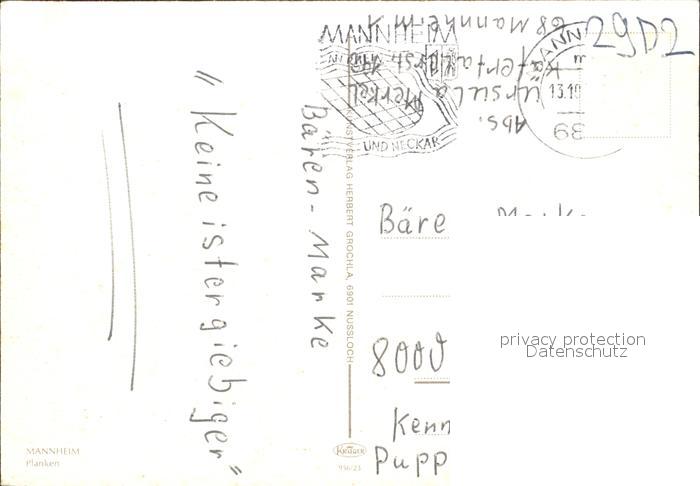 Bären-Marke
"Keine ist ergiebiger"
MANNHEIM
Planken
KUNSTVERLAG HERBERT GROCHLA, 6901 NUSSLOCH
Krüger
936/23
MANNHEIM
UND NECKAR
Abs.
Ursula Merkel
68 Mannheim 1
13.10
39
29D2
Bäre
8000
Kenn
Pupp
privacy protection
Datenschutz